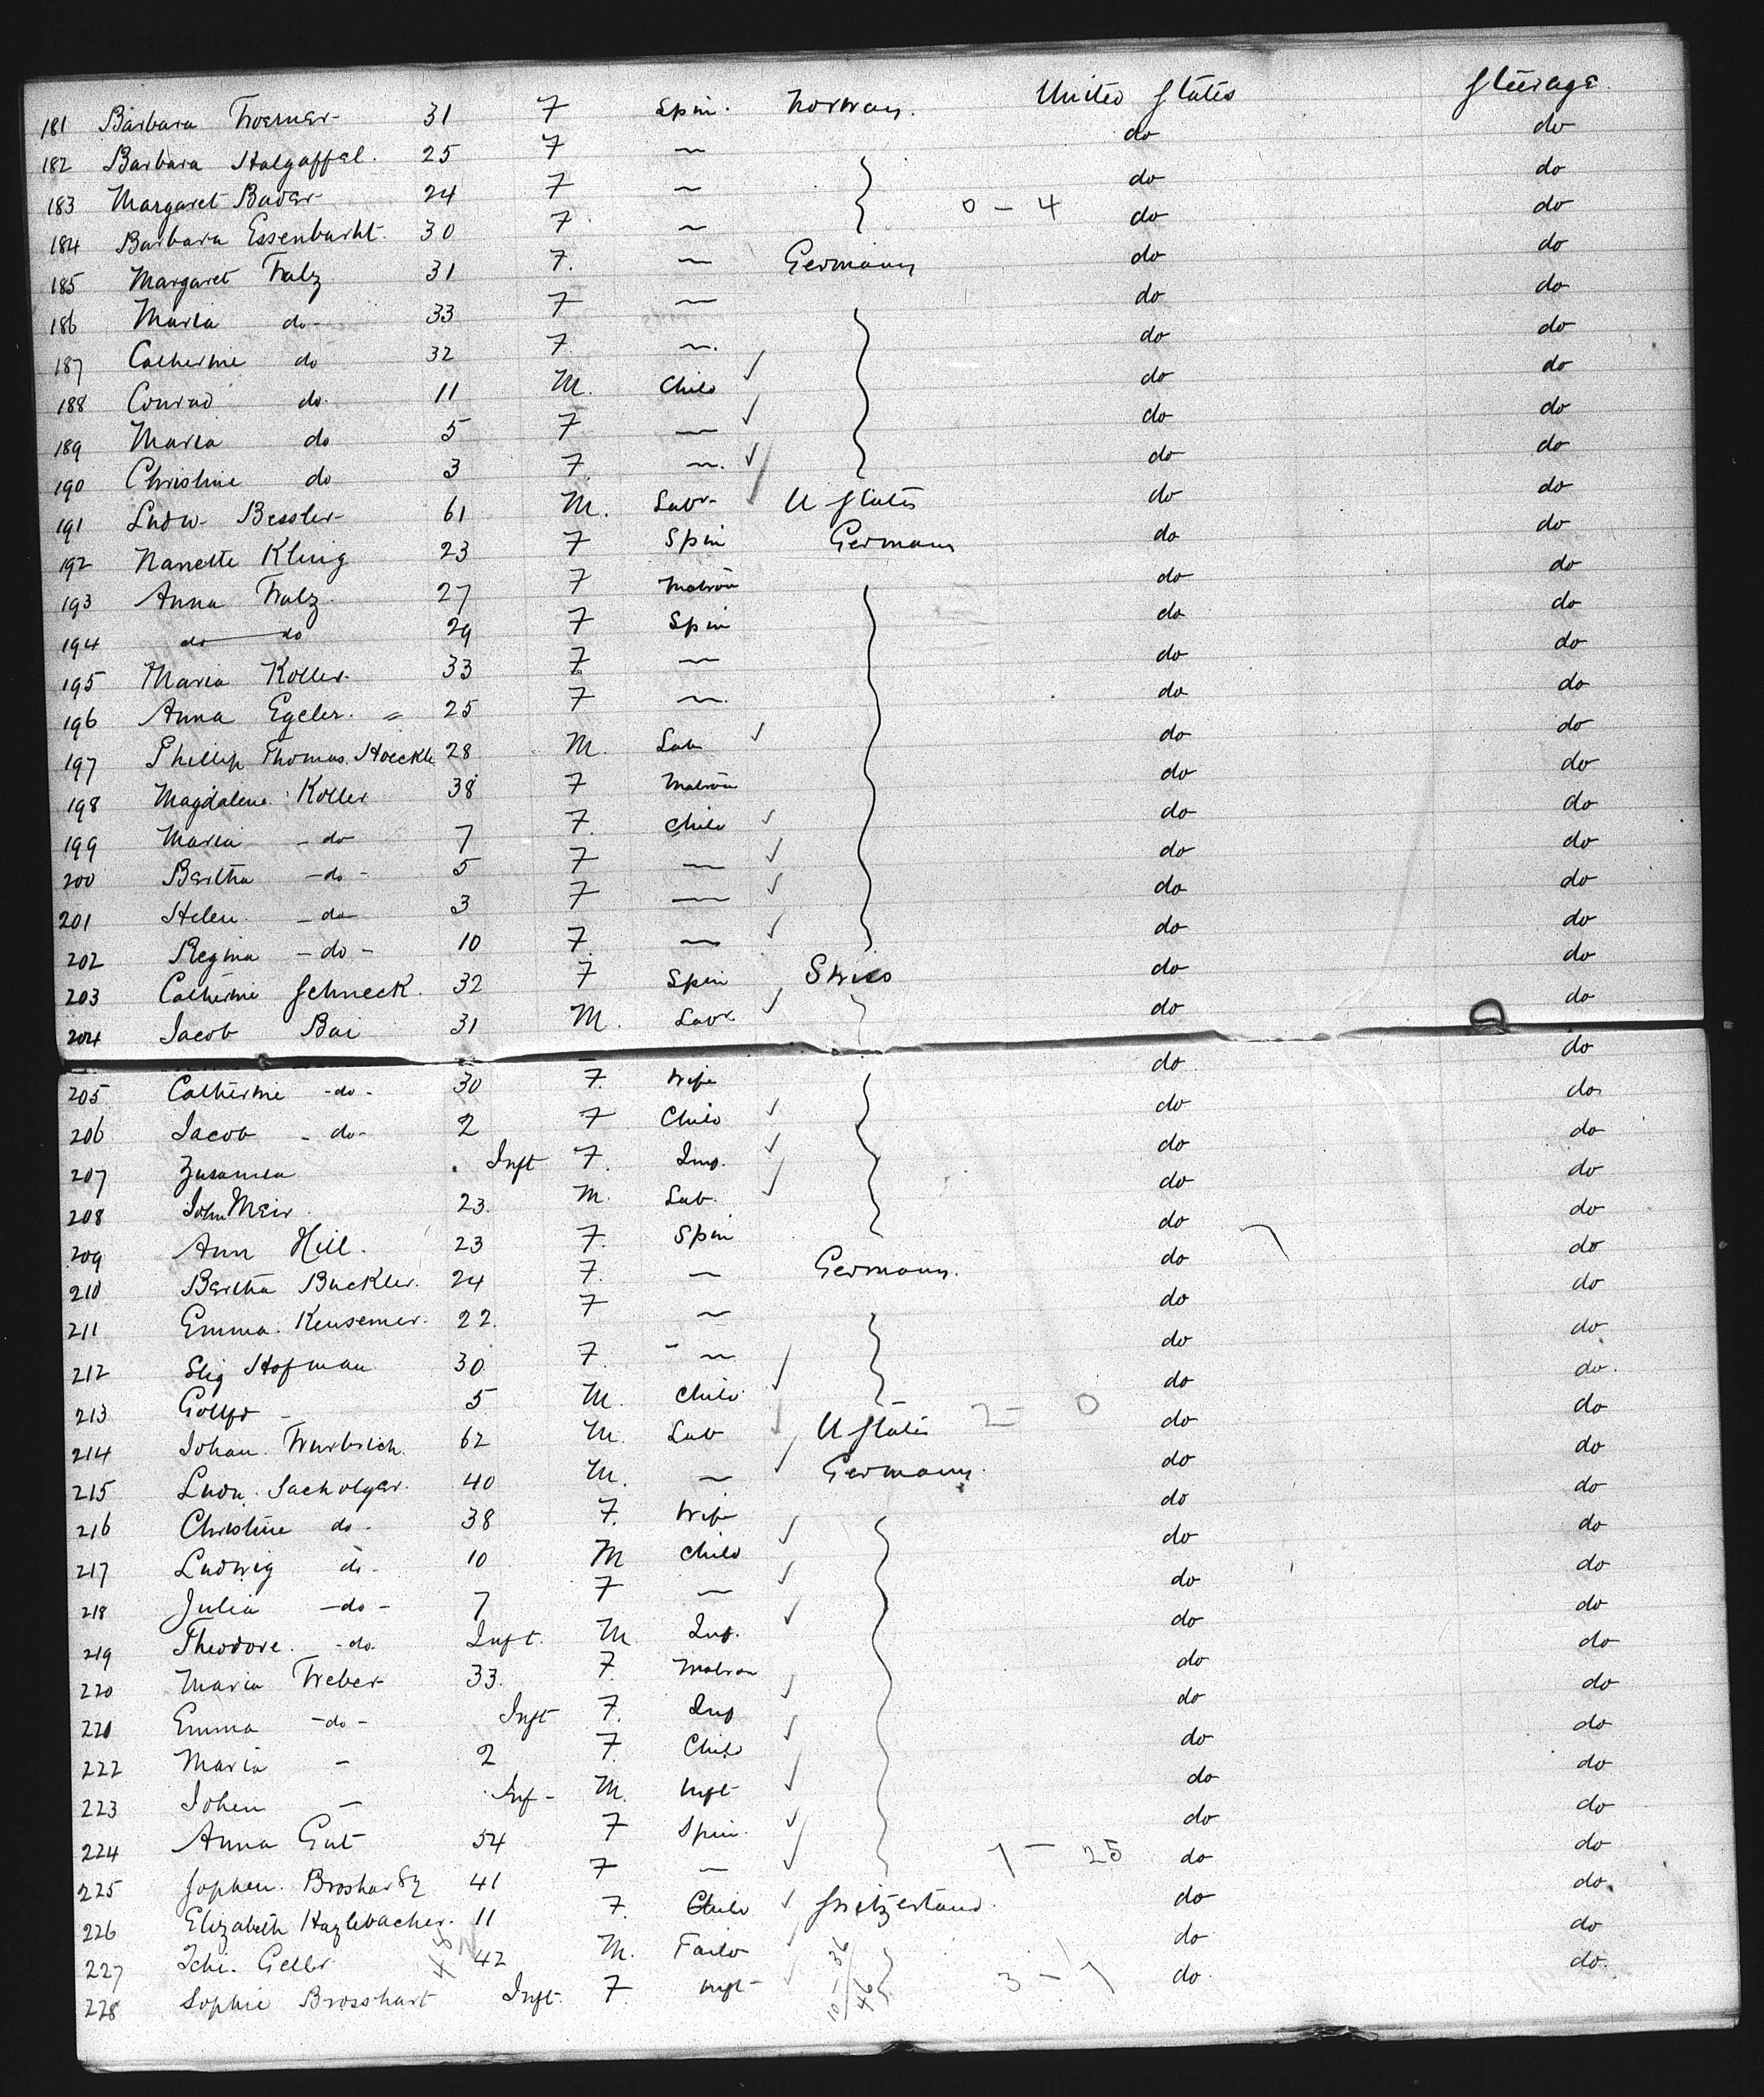 181 Barbara Woerner 31 F Spin. Norway. United States Steerage.
182 Barbara Halgaffel. 25 F " do do
183 Margaret Bader 24 F " do do
184 Barbara Essenbacht. 30 F " 0 - 4 do do
185 Margaret Walz 31 F. " Germany do do
186 Maria do- 33 F " do do
187 Catherine do 32 F. " do do
188 Conrad do. 11 M. Child ✓ do do
189 Maria do 5 F " ✓ do do
190 Christine do 3 F. " ✓ do do
191 Ludw. Bessler 61 M. Labr ✓ U States do do
192 Nanette Kling 23 F Spin Germany do do
193 Anna Walz. 27 F Matron do do
194 do do 29 F Spin do do
195 Maria Koller. 33 F " do do
196 Anna Egeler. = 25 F " do do
197 Phillip Thomas. Hoeckle 28 M. Lab ✓ do do
198 Magdalene Koller 38 F Matron do do
199 Maria - do 7 F. Child ✓ do do
200 Bertha - do - 5 F " ✓ do do
201 Helen. - do 3 F " ✓ do do
202 Regina - do - 10 F. " ✓ do do
203 Catherine Schneck. 32 F Spin Swiss do do
204 Jacob Bai 31 M. Labr ✓ do do
205 Catherine -do- 30 F. Wife do do
206 Jacob - do- 2 F Child ✓ do do
207 Zusanna Inft F. Inf. ✓ do do
208 John Meir 23. M. Lab. ✓ do do
209 Ann Hill. 23 F. Spin do do
210 Bertha Buckler. 24 F. " Germany. do do
211 Emma. Keusemer. 22. F " do do
212 Hofman 30 F. " do do
213 5 M. Child ✓ do do.
214 Johan. 62 M. Lab ✓ U States 2 - 0 do do
215 Ludw. Sacholger. 40 M. " ✓ Germany. do do
216 Christine do- 38 F. Wife do do
217 Ludwig do- 10 M Child ✓ do do
218 Julia -do- 7 F " ✓ do do
219 Theodore. -do. Inft. M. Inf. ✓ do do
220 Maria Weber 33. F. Matron do do
221 Emma -do- Inft F. Inf ✓ do do
222 Maria - 2 F. Child ✓ do do
223 Johen - Inf - M. Inft ✓ do do
224 Anna Gut 54 F Spin. ✓ do do
225 41 F " ✓ 7 - 25 do do
226 Elizabeth Hazlebacher. 11 F. Child ✓ Switzerland. do do
227 Geller 42 M. Tailo do do
228 Sophie Brosshart Inft. F. Inft 10-36 46 3 - 7 do. do.